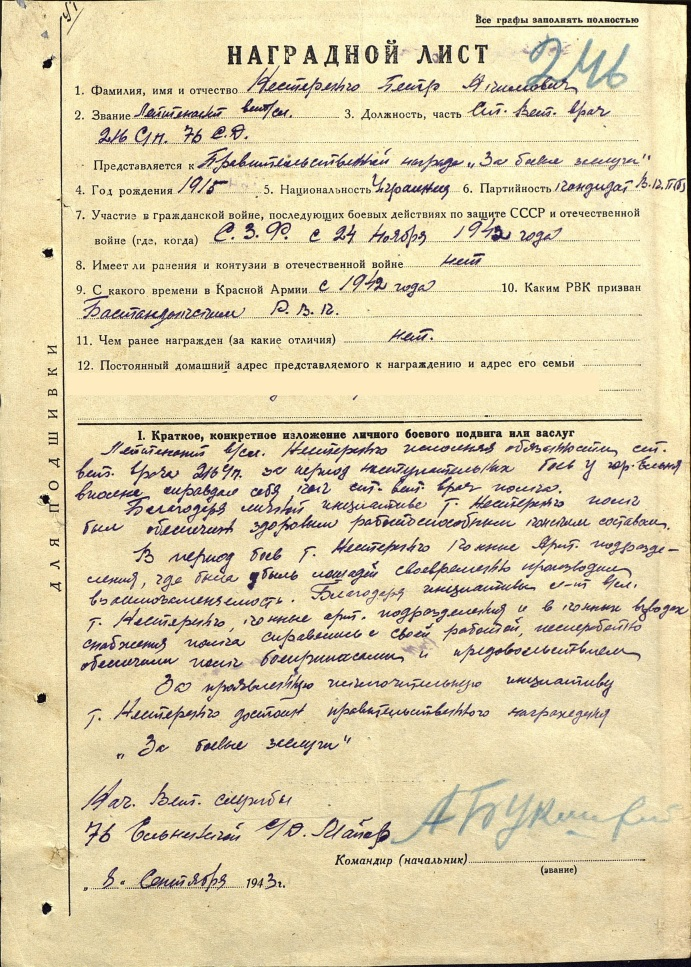 Все графы заполнять полностью
НАГРАДНОЙ ЛИСТ
246
1. Фамилия, имя и отчество Нестеренко Петр
2. Звание Лейтенант вет/сл. 3. Должность, часть Ст. Вет. врач
216 С.п. 76 С.Д.
Представляется к Правительственной награде „За боевые заслуги"
4. Год рождения 1915 5. Национальность Украинец 6. Партийность кандидат В.К.П(б)
7. Участие в гражданской войне, последующих боевых действиях по защите СССР и отечественной
войне (где, когда) С.З.Ф. с 24 Ноября 1942 года
8. Имеет ли ранения и контузии в отечественной войне нет
9. С какого времени в Красной Армии с 1942 года 10. Каким РВК призван
Р.В.К.
11. Чем ранее награжден (за какие отличия) нет.
12. Постоянный домашний адрес представляемого к награждению и адрес его семьи
ДЛЯ ПОДШИВКИ
I. Краткое, конкретное изложение личного боевого подвига или заслуг
Лейтенант в/сл. Нестеренко исполняя обязанности ст.
вет. врача 216 сп. за период наступательных боев у гор. Ельня
вполне оправдал себя как ст. вет. врач полка.
Благодаря личной инициативе т. Нестеренко полк
был обеспечен здоровым работоспособным конским составом.
В период боев т. Нестеренко конные Арт. подразде-
ления, где была убыль лошадей своевременно производил
взаимозаменяемость. Благодаря инициативы л-т в/сл.
т. Нестеренко, конные арт. подразделения и в конных взводах
снабжения полка справились с своей работой, бесперебойно
обеспечили полк боеприпасами и продовольствием
За проявленную исключительную инициативу
т. Нестеренко достоин правительственного награждения
„За боевые заслуги"
Нач. Вет. службы
76 Ельнинской С/Д. Майор
Командир (начальник)
(звание)
„8" Сентября 1943 г.